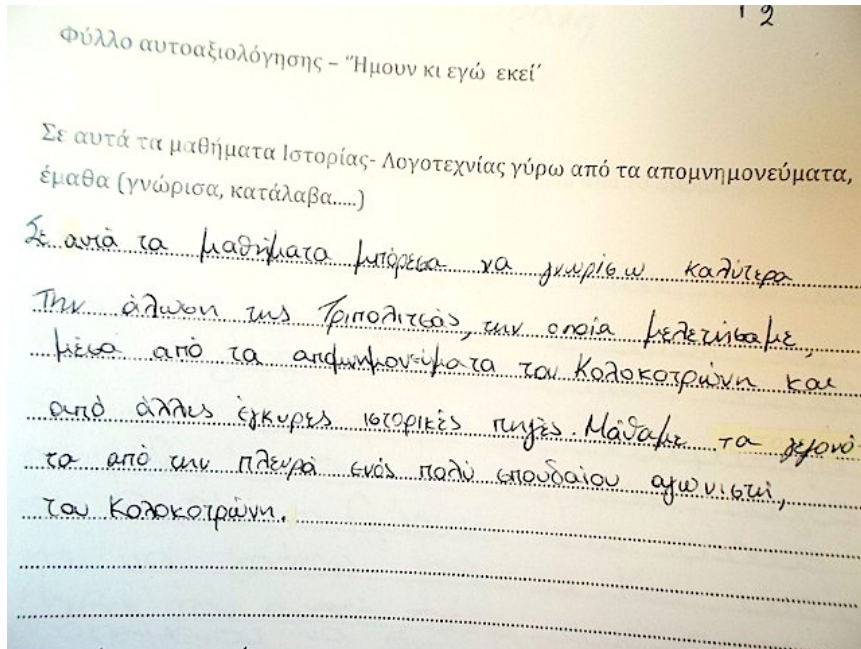 12
Φύλλο αυτοαξιολόγησης – "Ήμουν κι εγώ εκεί"
Σε αυτά τα μαθήματα Ιστορίας- Λογοτεχνίας γύρω από τα απομνημονεύματα,
έμαθα (γνώρισα, κατάλαβα.....)
Σε αυτά τα μαθήματα μπόρεσα να γνωρίσω καλύτερα
Την άλωση της Τριπολιτσάς, την οποία μελετήσαμε,
μέσα από τα απομνημονεύματα του Κολοκοτρώνη και
από άλλες έγκυρες ιστορικές πηγές. Μάθαμε τα γεγονό-
τα από την πλευρά ενός πολύ σπουδαίου αγωνιστή,
του Κολοκοτρώνη.